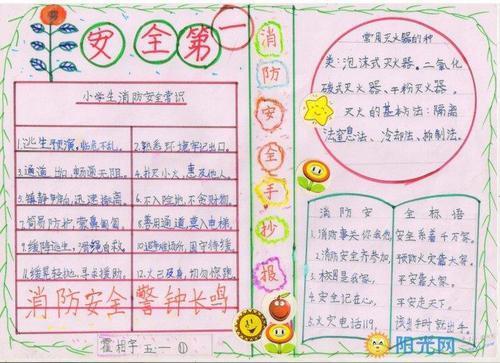 安全第一
小学生消防安全常识
1.逃生预演,临危不乱。
2.熟悉环境牢记出口。
3.通道出口,畅通无阻。
4.扑灭小火,惠及他人。
5.镇静,迅速撤离。
6.不入险地,不贪财物。
7.简易防护,蒙鼻匍匐。
8.善用通道,莫入电梯。
9.缓降逃生,滑绳自救。
10.避难场所,固守待援。
11.缓晃轻抛,寻求援助。
12.火已及身,切勿惊跑。
消防安全 警钟长鸣
霍相宇 五一 ①
消防安全手抄报
常见灭火器的种
类:泡沫式灭火器。二氧化
碳式灭火器、干粉灭火器。
灭火的基本方法:隔离
法窒息法、冷却法、抑制法。
消防安全标语
1.消防事关你我他, 安全系着千万家。
2.消防安全齐参加, 预防火灾靠大家。
3.校是我家, 平安靠大家。
4.安全记在心, 平安走天下。
5.火灾电话119, 时就出手。
阳光网